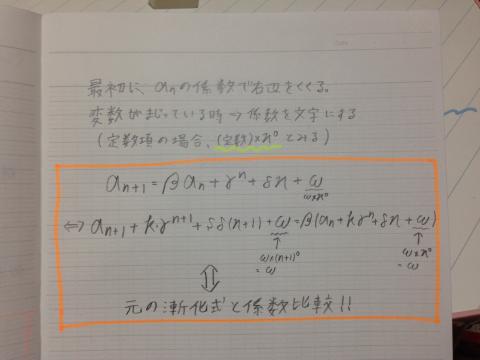 最初に、αnの係数で右辺をくくる。
変数が混じっている時→係数を文字にする
(定数項の場合、(定数)×n⁰とみる)
an+1 = βan + γⁿ + δn + ω
ω×n⁰
⇔ an+1 + k・γⁿ⁺¹ + δδ(n+1) + ω = β(an + kγⁿ + δn + ω)
↑ ↑
ω×(n+1)⁰ ω×n⁰
= ω = ω
⇕
元の漸化式と係数比較!!